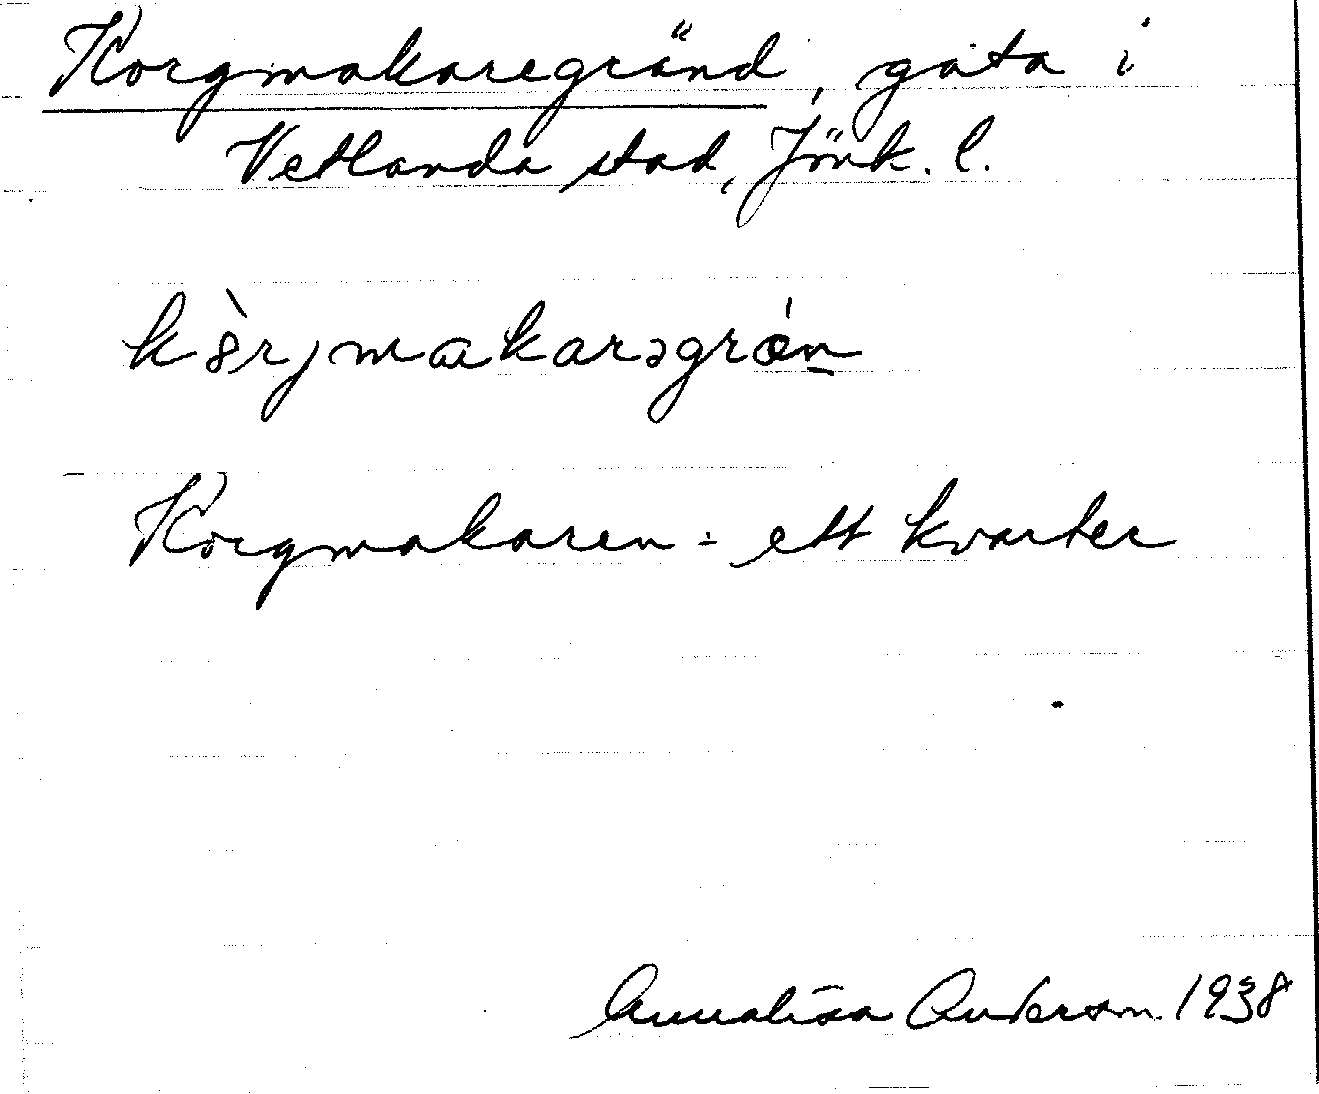 Korgmakaregränd, gata i
Vetlanda stad, Jönk. l.
kòrjmakarəgrǽn̲
Korgmakaren = ett kvarter
Annalisa Anderson 1938